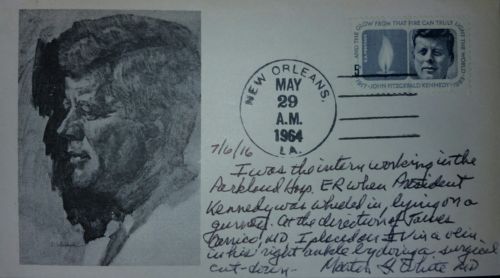 AND THE GLOW FROM THAT FIRE CAN TRULY LIGHT THE WORLD
U.S. POSTAGE
5¢
1917·JOHN FITZGERALD KENNEDY·1963
NEW ORLEANS,
MAY
29
A.M.
1964
LA.
7/6/16
I was the intern working in the
Parkland Hosp. ER when President
Kennedy was wheeled in, lying on a
gurney. At the direction of James
Carrico, MD, I placed an IV in a vein
in his right ankle by doing a surgical
cut-down. Martin G. White MD